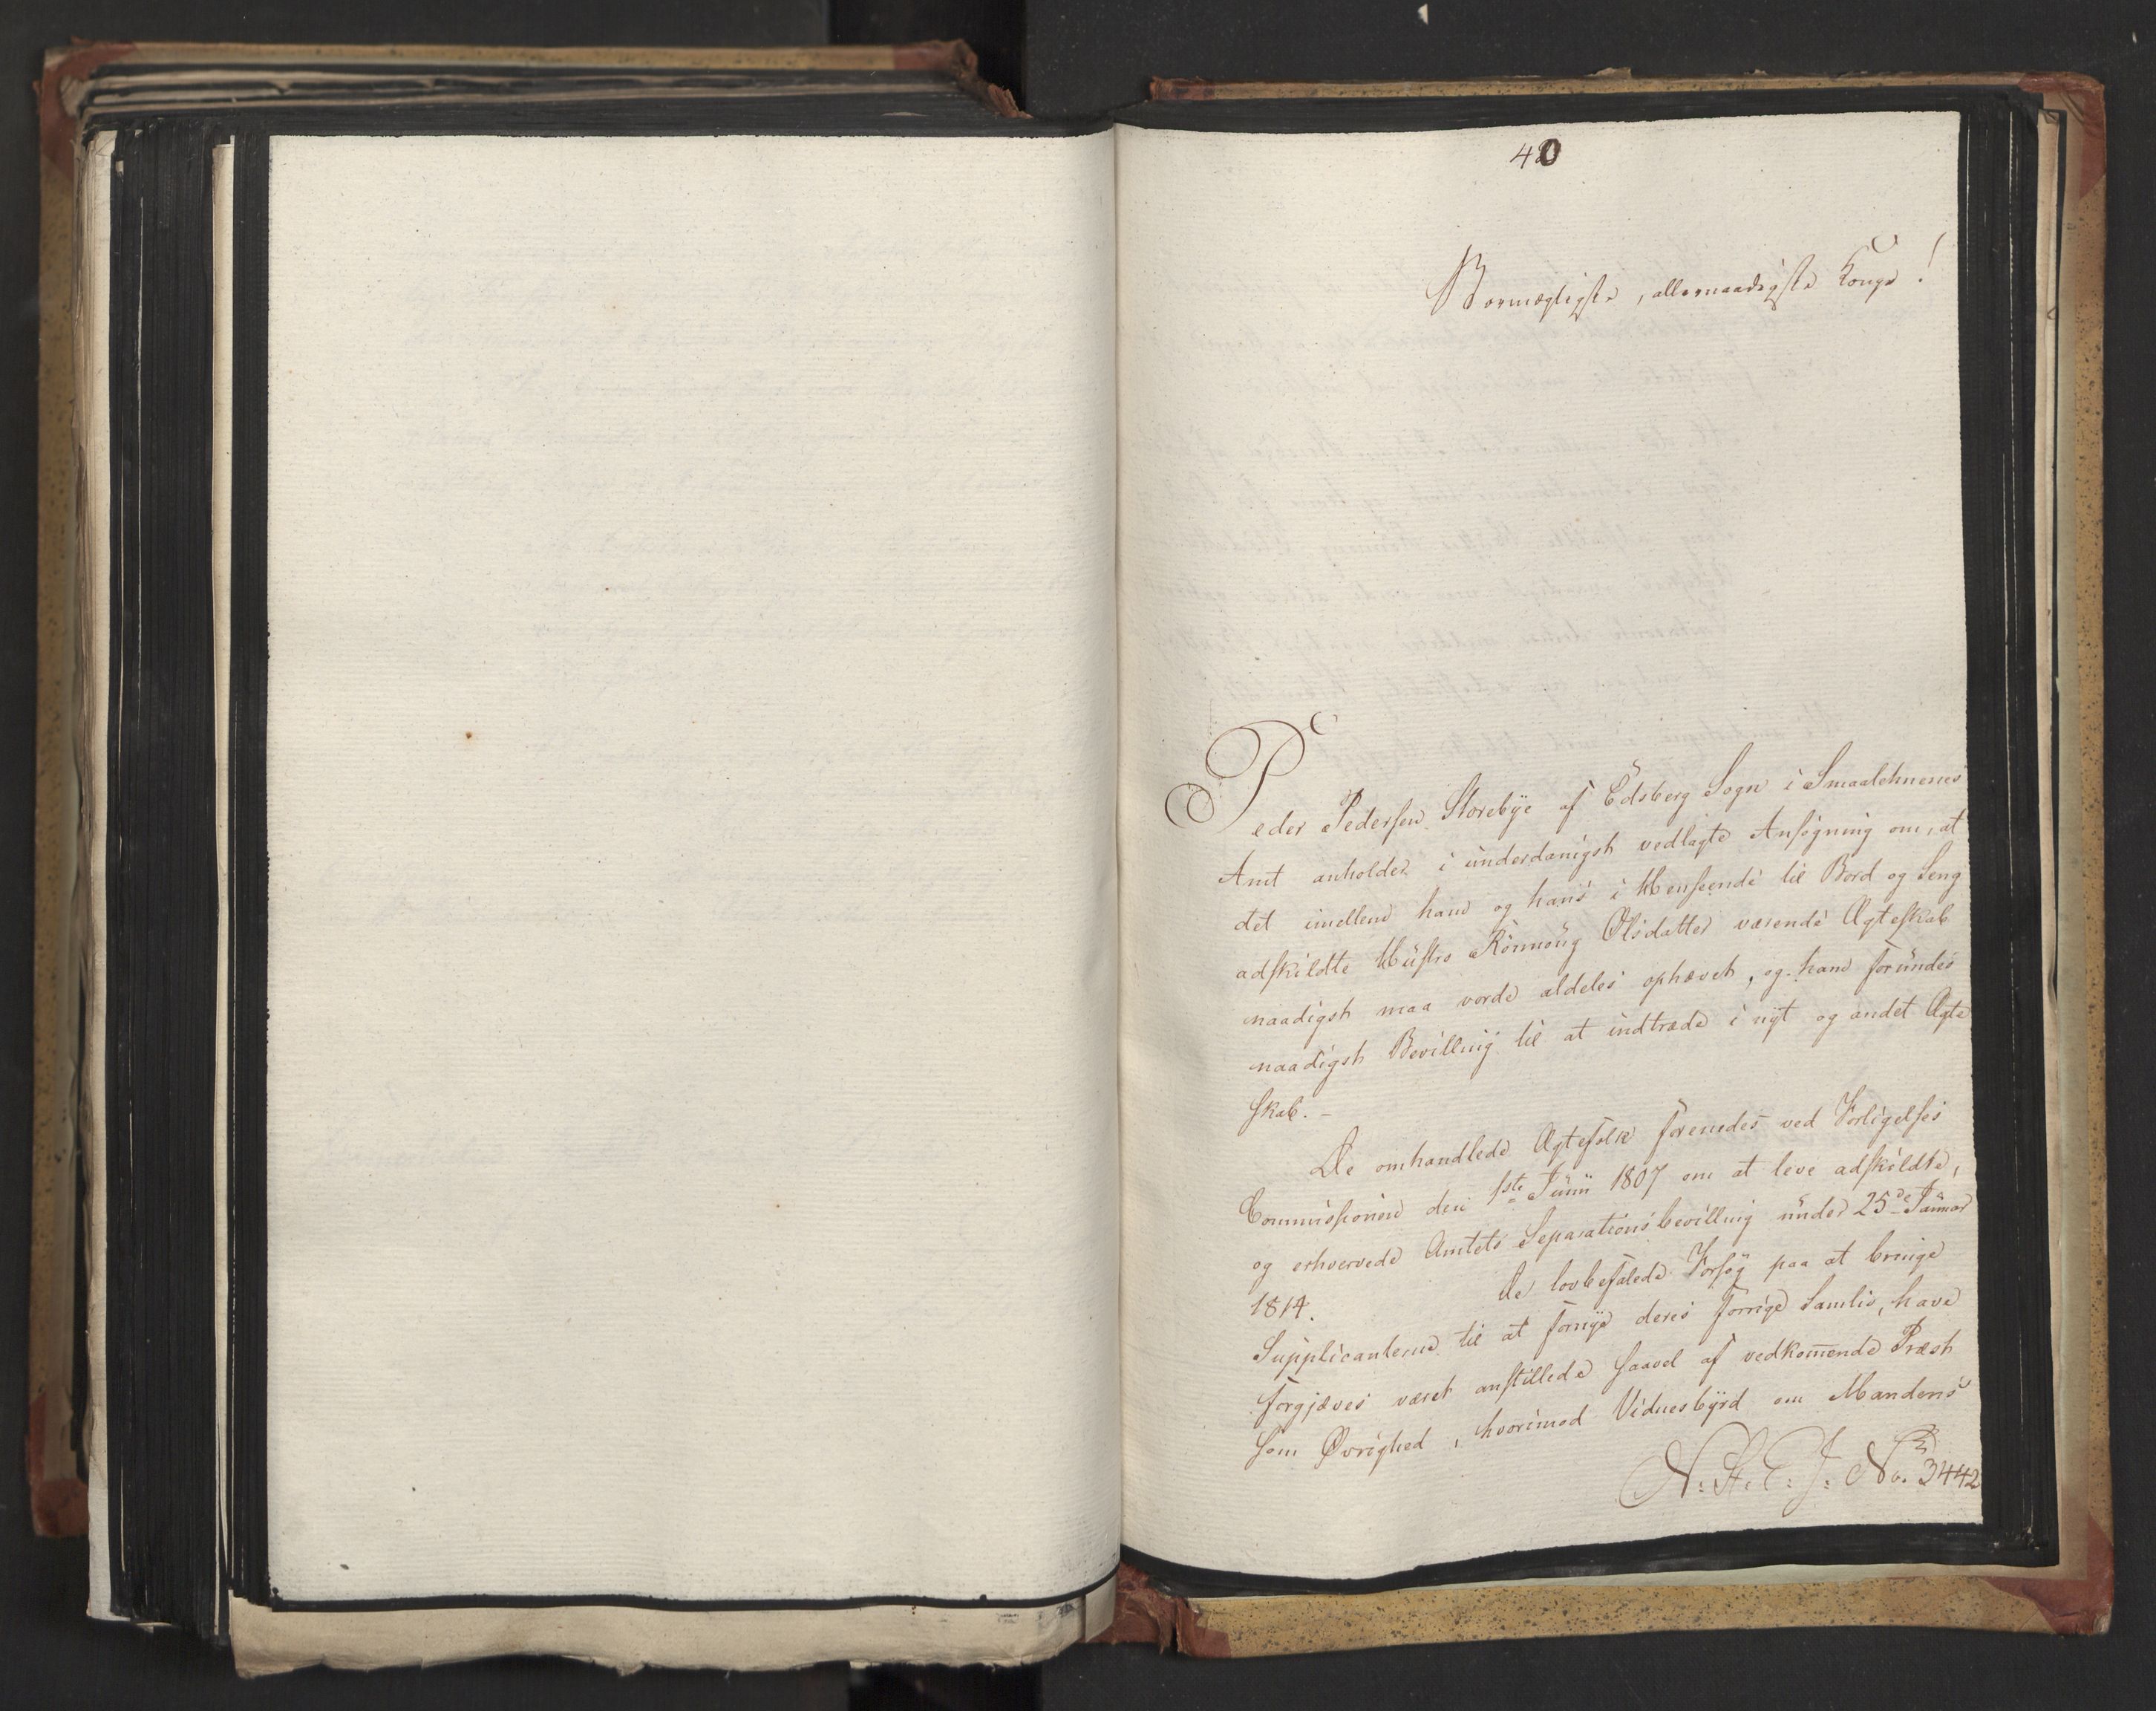 420
Stormægtigste, allernaadigste Konge!
Peder Pedersen Storebye af Edsberg Sogn i Smaalehnenes
Amt anholder i underdanigst vedlagte Ansøgning om, at
det imellem ham og hans i Henseende til Bord og Seng
adskildte Hustro Rönnoug Olsdatter værende Ægteskab
naadigst maa vorde aldeles ophævet, og ham forundes
naadigst Bevilling til at indtræde i nyt og andet Ægte
skab. -
De omhandlede Ægtefolk forenedes ved Forligelses
Commissionen den 1ste Junii 1807 om at leve adskildte,
og erhvervede Amtets Separationsbevilling under 25de Januar
1814. De lovbefalede Forsøg paa at bringe
Supplicanterne til at fornye deres forrige Samliv, have
forgjæves været anstillede saavel af vedkommende Præst
som Øvrighed, hvorimod Vidnesbyrd om Mandens
N: St: C: J: No. 3442